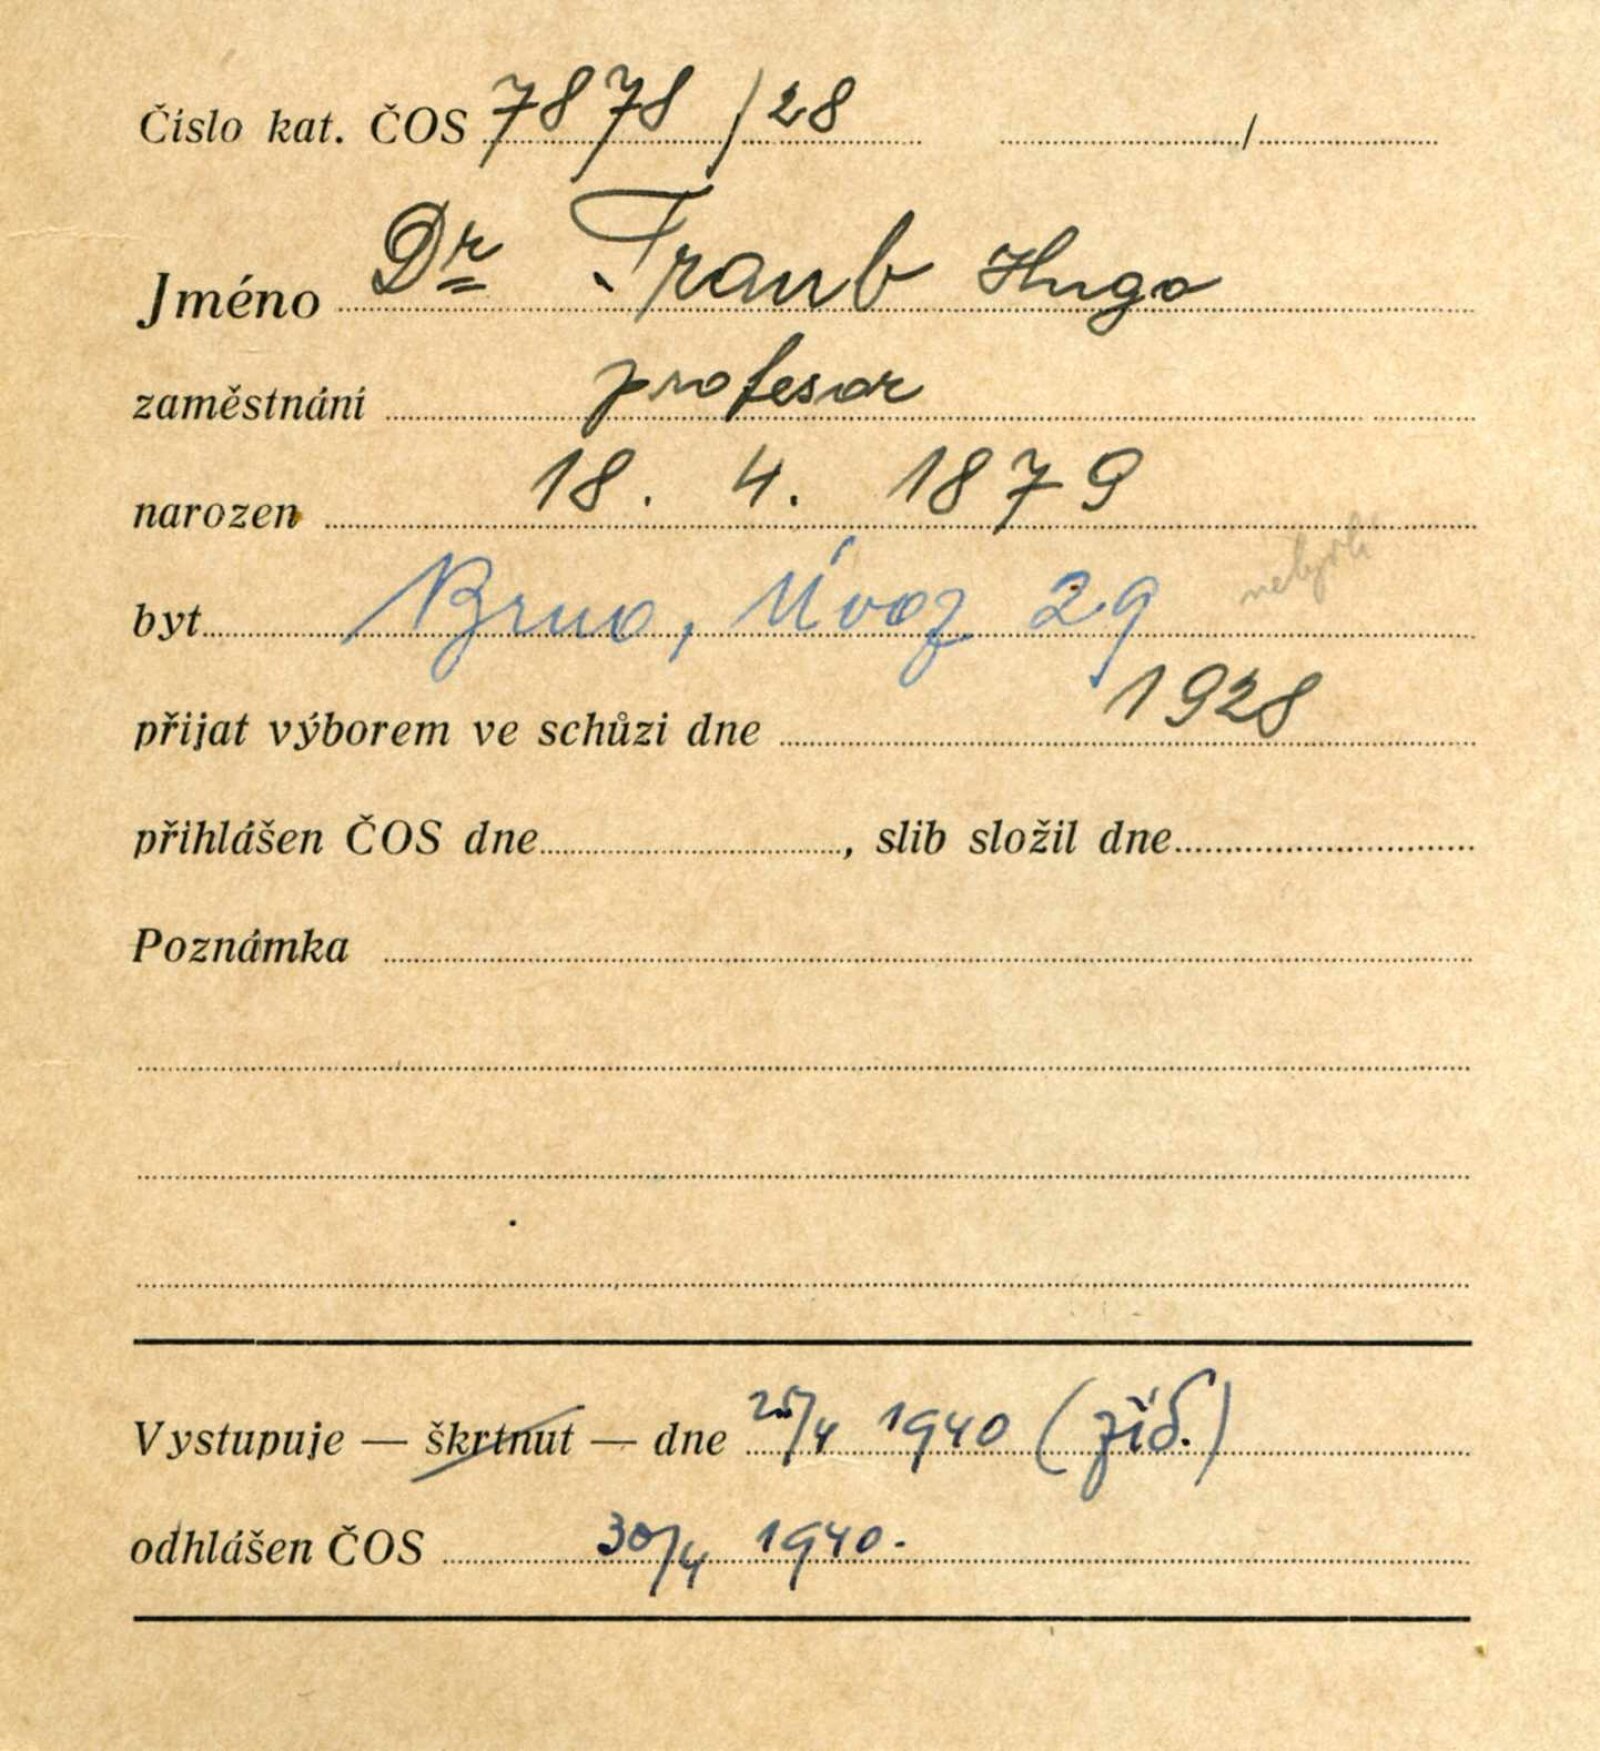 Číslo kat. ČOS 7878/28 /
Jméno Dr Traub Hugo
zaměstnání profesor
narozen 18. 4. 1879
byt Brno, Úvoz 29
přijat výborem ve schůzi dne 1928
přihlášen ČOS dne, slib složil dne
Poznámka
Vystupuje — škrtnut — dne 25/4 1940 (žid.)
odhlášen ČOS 30/4 1940.